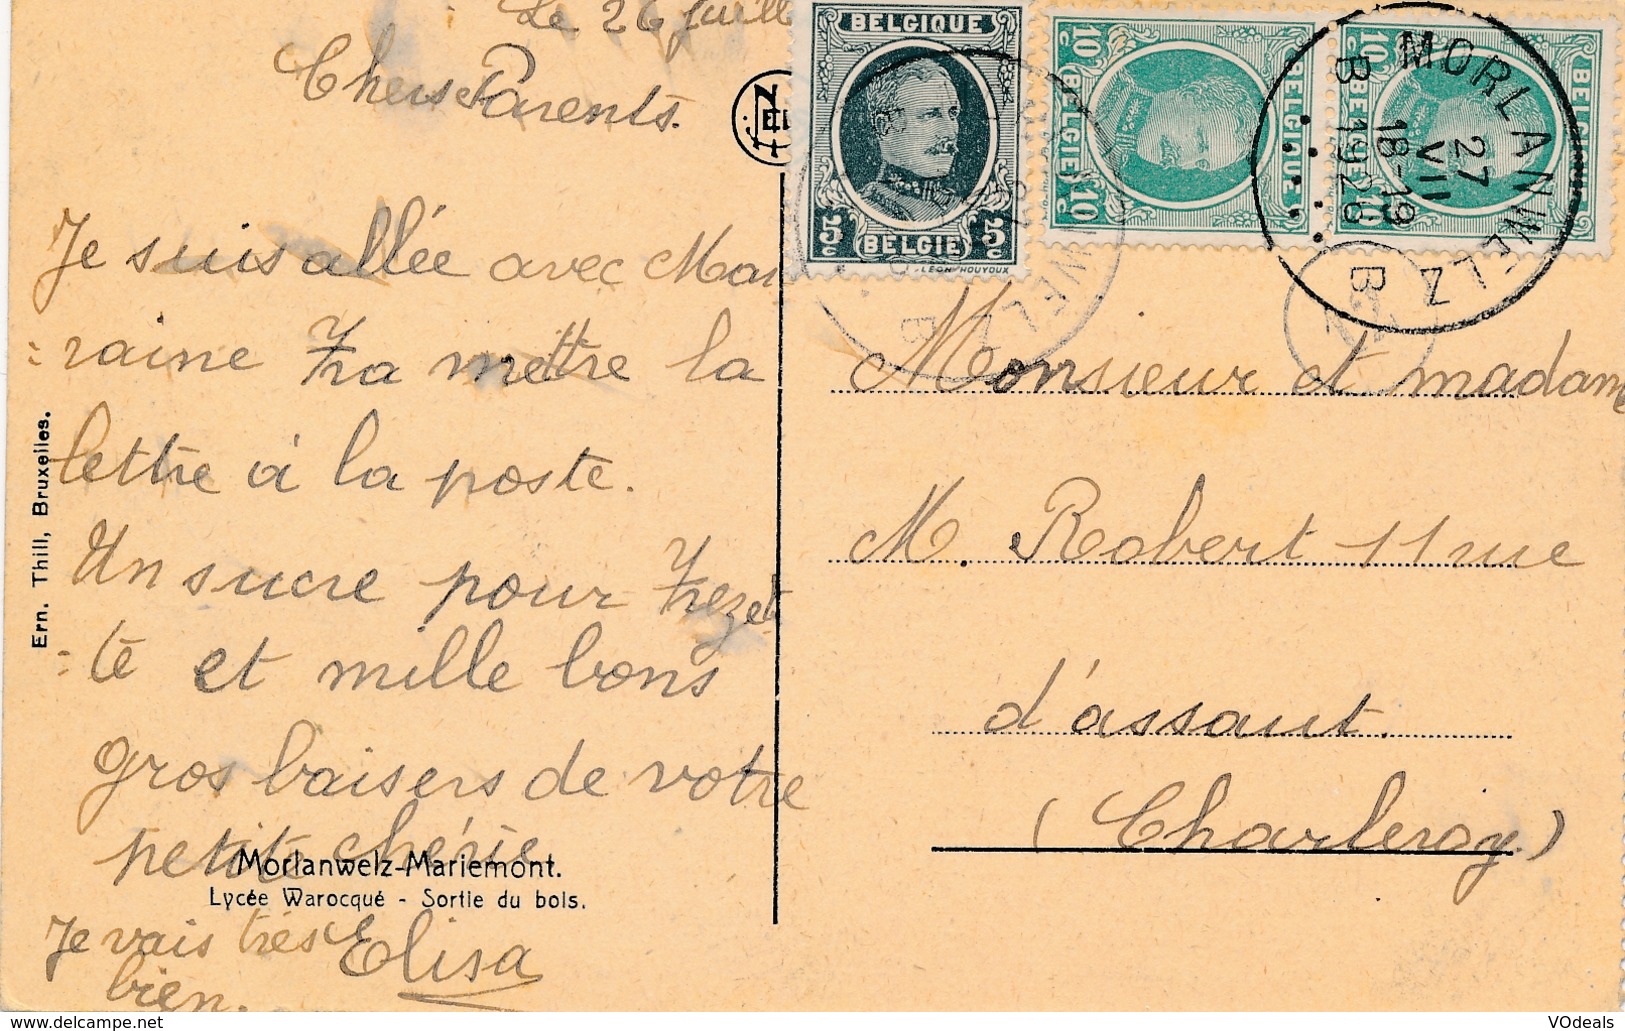 Le 26 juill
Chers Parents.
Je suis allée avec Mar
=raine Ira mettre la
lettre à la poste.
Un sucre pour Frezet
=te et mille bons
gros baisers de votre
petite chérie
Elisa
Je vais très
bien.
Ern. Thill, Bruxelles.
Morlanwelz-Mariemont.
Lycée Warocqué - Sortie du bois.
BELGIQUE
5c BELGIE 5c
LEON HOUYOUX
10c BELGIQUE
BELGIE 10c
10c BELGIQUE
BELGIE
MORLANWELZ
27
VII
18-19
1926
B B
Monsieur et madame
M. Robert 11 rue
d'assaut.
(Charleroy)
© delcampe.net
VOdeals